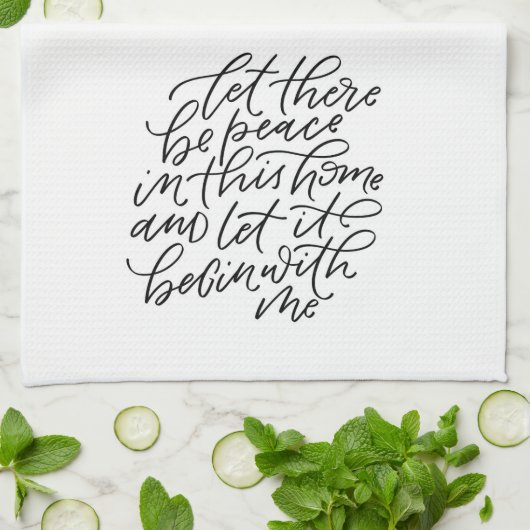 let there
be peace
in this home
and let it
begin with
me